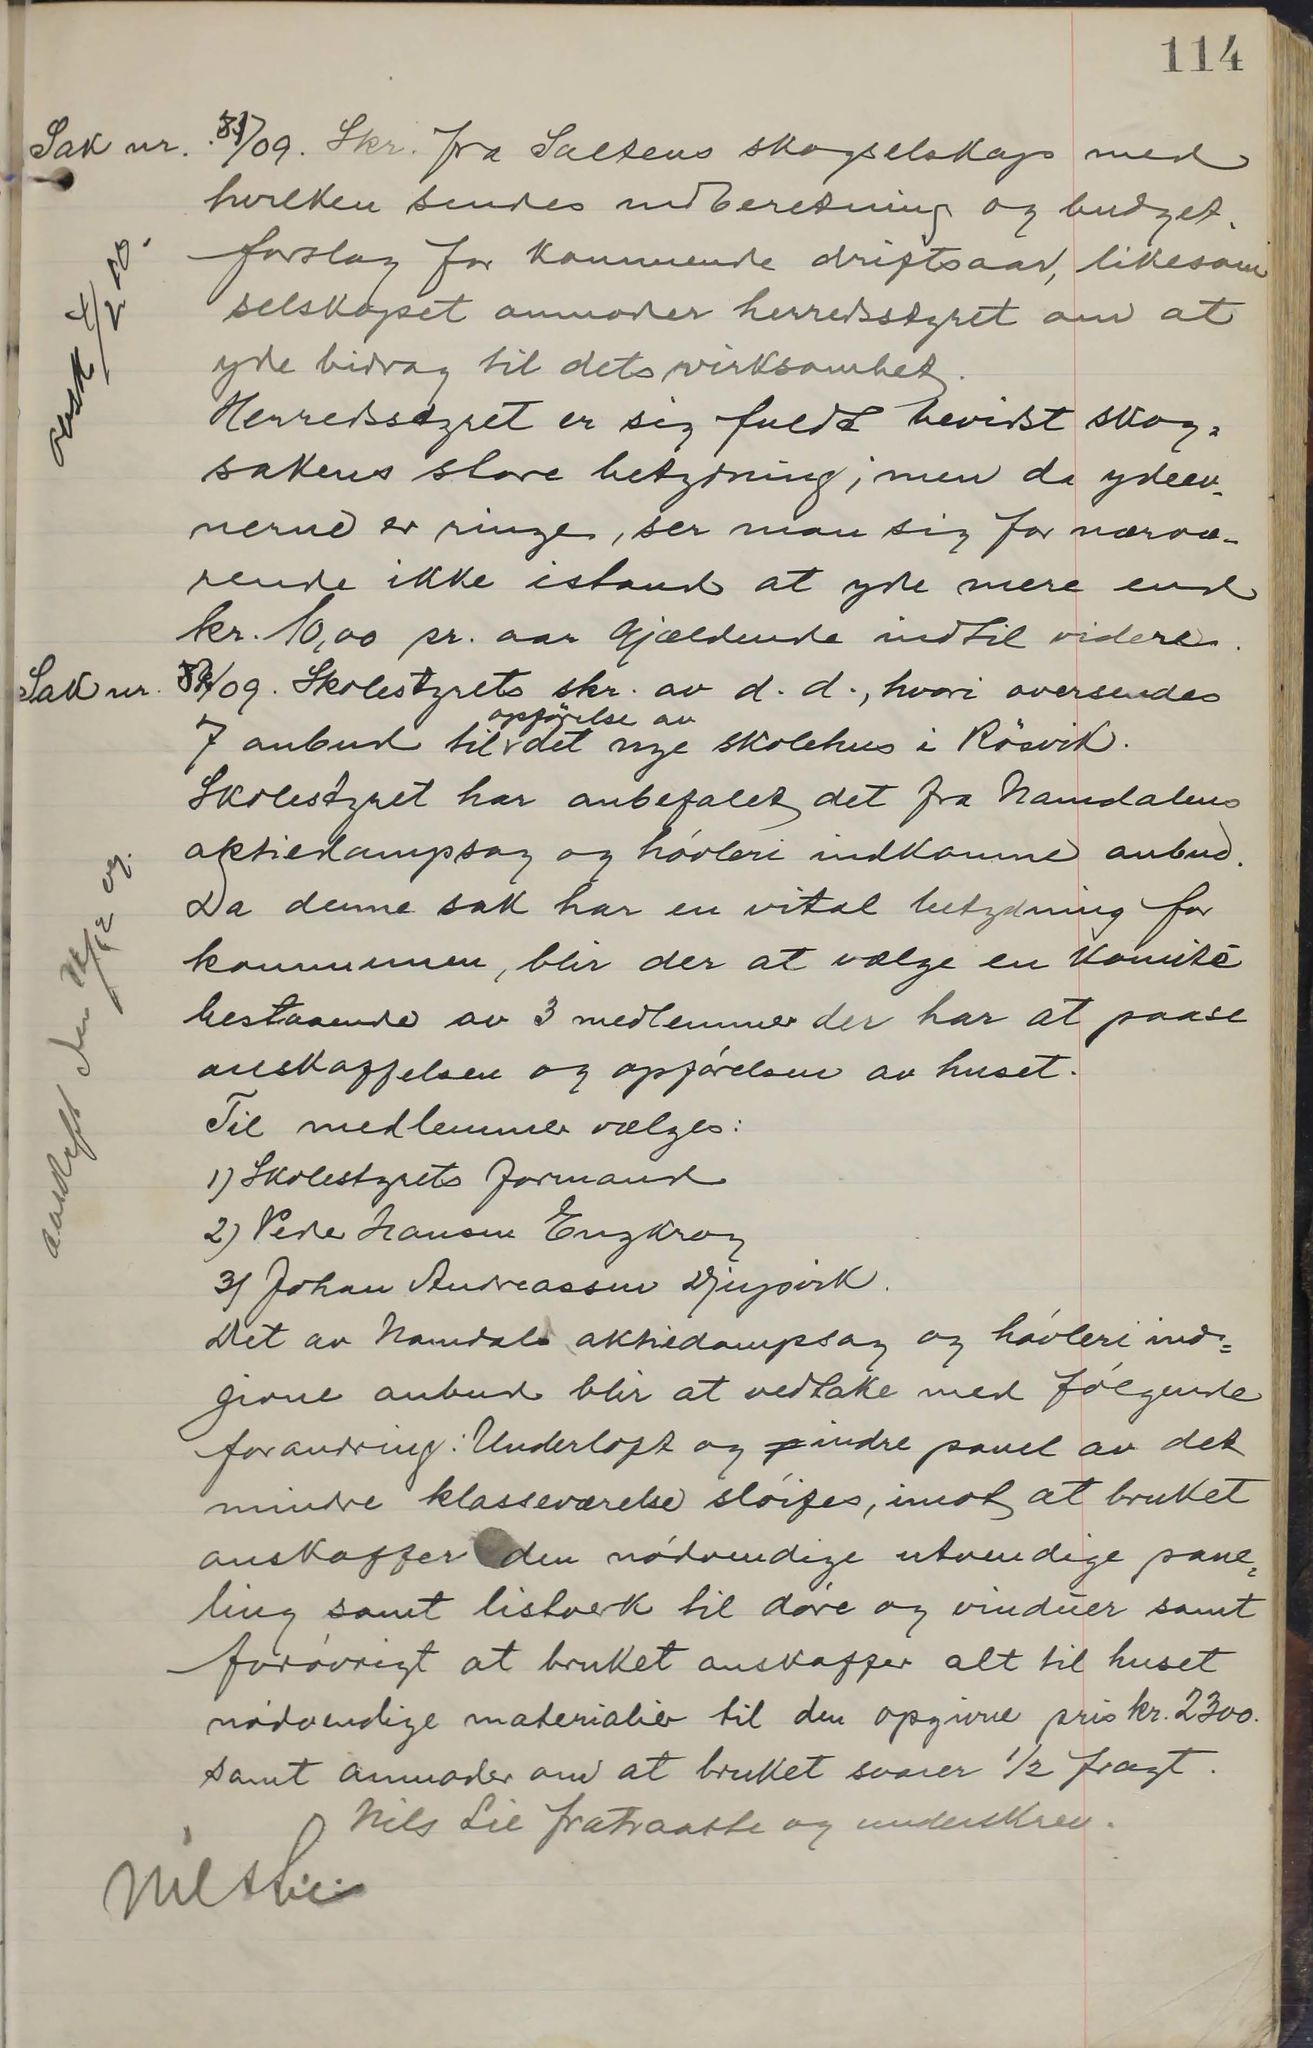 114
Sak nr. 81/09. Skr. fra Saltens skogselskap med
hvilken sendes indberetning og budget-
forslag for kommende driftsaar, likesom
selskapet anmoder herredsstyret om at
yde bidrag til dets virksomhet.
Herredsstyret er sig fuldt bevidst skog-
sakens store betydning; men da ydeev-
nerne er ringe, ser man sig for nærvæ-
rende ikke istand at yde mere end
kr. 10,00 pr. aar gjældende indtil videre.
Sak nr. 82/09. Skolestyrets skr. av d. d., hvori oversendes
7 anbud til opførelse av det nye skolehus i Rösvik.
Skolestyret har anbefalet det fra Namdalens
aktiedampsag og høvleri indkomne anbud.
Da denne sak har en vital betydning for
kommunen, blir der at vælge en komité
bestaaende av 3 medlemmer der har at paase
anskaffelsen og opførelsen av huset.
Til medlemmer vælges:
1) Skolestyrets formand
2) Peder Hansen Engkrog
3) Johan Andreassen Djupvik.
Det av Namdals aktiedampsag og høvleri ind-
givne anbud blir at vedtake med følgende
forandring: Underloft og indre panel av det
mindre klasseværelse sløifes, imot at bruket
anskaffer den nødvendige utvendige pane-
ling samt listverk til døre og vinduer samt
forøvrigt at bruket anskaffer alt til huset
nødvendige materialier til den opgivne pris kr. 2300.
samt anmoder om at bruket svarer 1/2 fragt.
Nils Lie fratraadte og underskrev.
Nils Lie
utskr 4/2 10.
avskrift den /12 09.